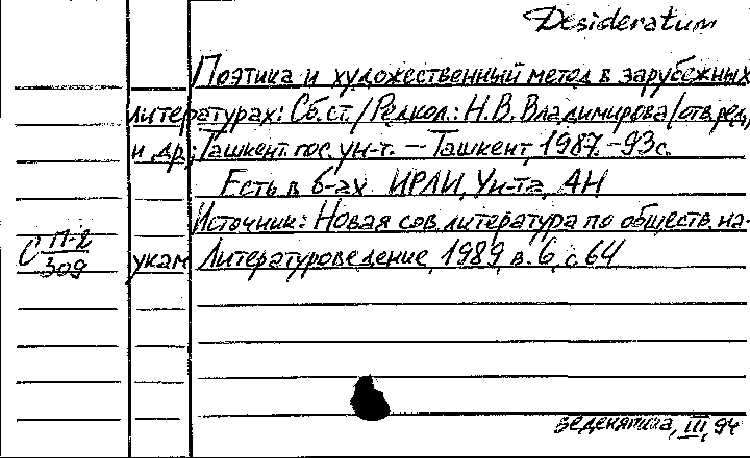 Desideratum
Поэтика и художественный метод в зарубежных
литературах: Сб. ст. / Редкол.: Н.В. Владимирова (отв. ред.)
и др.; Ташкент. гос. ун-т. — Ташкент, 1987. - 93 с.
Есть в б-ах ИРЛИ, Ун-та, АН
Источник: Новая сов. литература по обществ. на-
С П-2/309 укам Литературоведение, 1989, в. 6, с 64
веденятина, III, 94